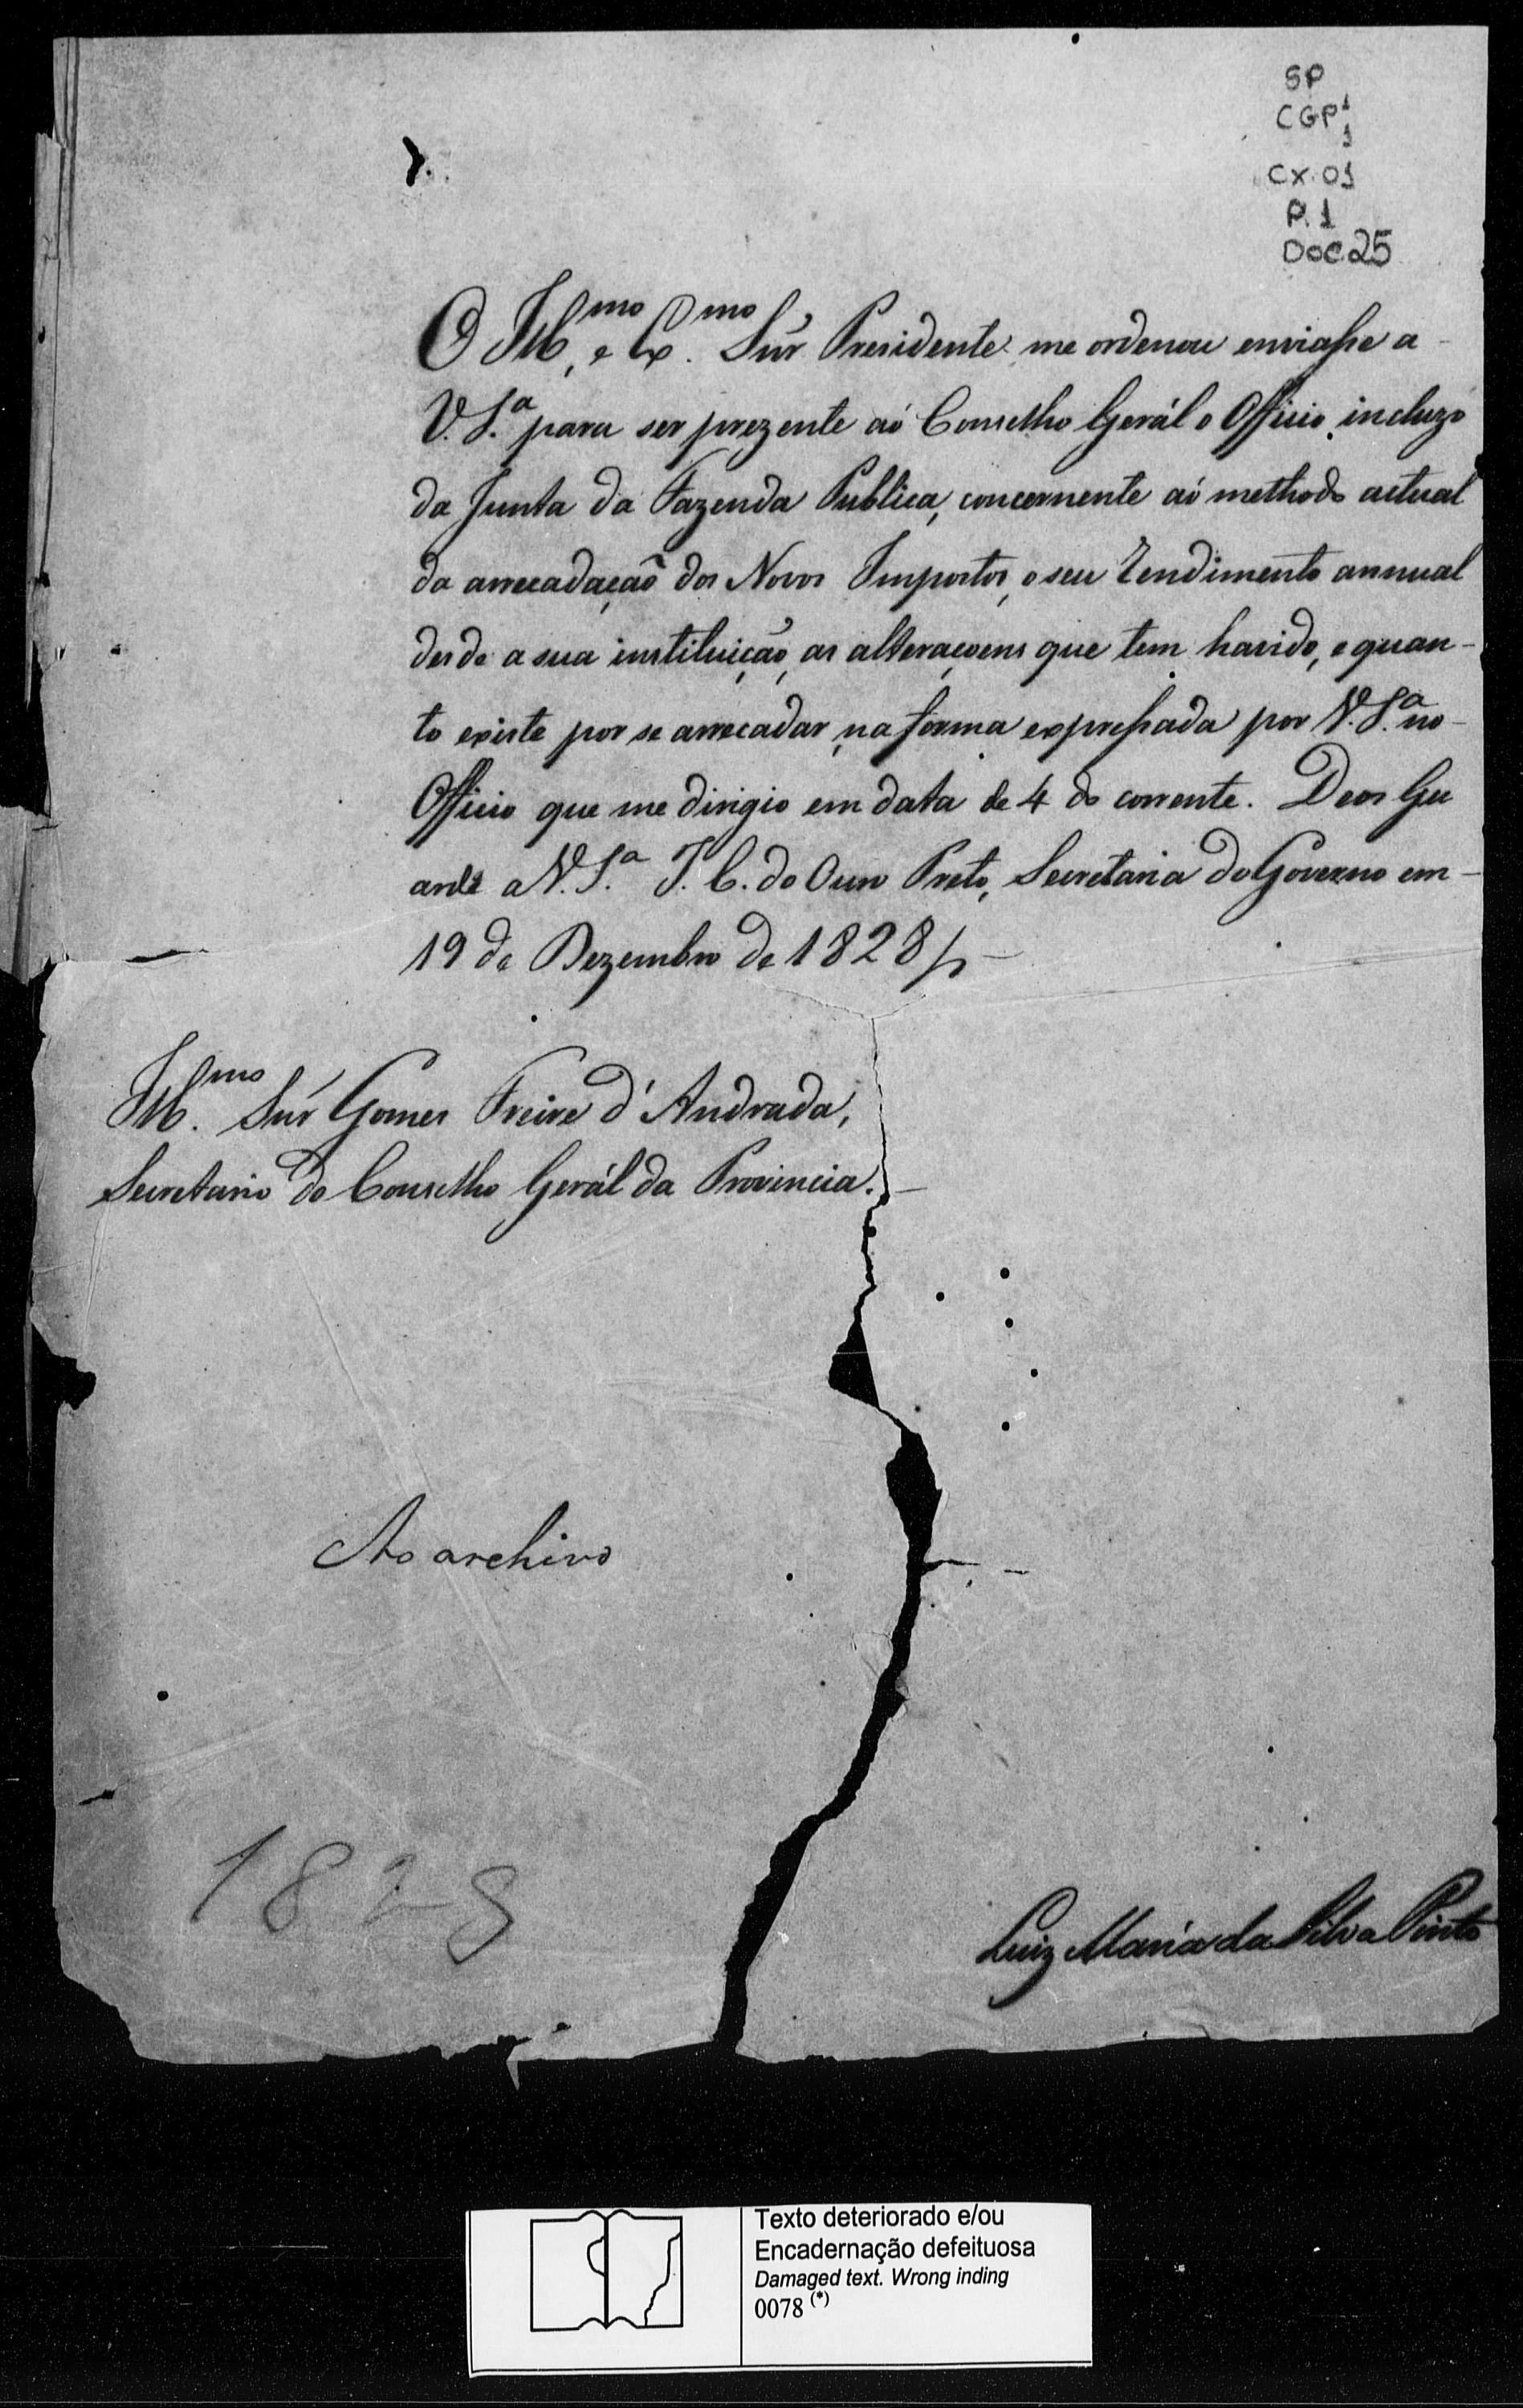 SP
CGP¹
1
CX. 01
P. 1
DOC. 25
O Ill.mo, e Ex.mo Snr̃ Presidente me ordenou enviasse a
V. S.ª para ser prezente aó Conselho Gerál o Officio incluzo
da Junta da Fazenda Publica, concernente aó methodo actual
da arrecadação dos Novos Impostos, o seu Rendimento annual
desde a sua instituição, as alteraçoens que tem havido, e quan-
to existe por se arrecadar, na forma expressada por V. S.ª no
Officio que me dirigio em data de 4 do corrente. Deos Gu
arde a V. S.ª I. C. do Ouro Preto, Secretaria do Governo em
19 de Dezembro de 1828
Ill.mo Snr̃ Gomes Freire d'Andrada,
Secretario do Conselho Gerál da Provincia.
Ao archivo
1828
Luiz Maria da Silva Pinto
Texto deteriorado e/ou
Encadernação defeituosa
Damaged text. Wrong inding
0078 (*)